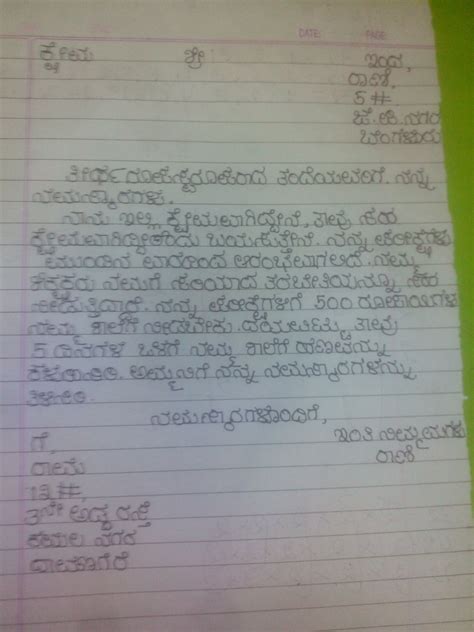 DATE: PAGE:
ಕ್ಷೇಮ ಶ್ರೀ ಇಂದ,
ರಾಣಿ,
5 #.
ಜೆ.ಪಿ. ನಗರ
ಬೆಂಗಳೂರು
ತೀರ್ಥರೂಪ ತಂದೆಯವರಿಗೆ. ನನ್ನ
ನಮಸ್ಕಾರಗಳು.
ನಾನು ಇಲ್ಲಿ ಕ್ಷೇಮವಾಗಿದ್ದೇನೆ, ತಾವು ಸಹ
ಕ್ಷೇಮವಾಗಿದ್ದೀರೆಂದು ಬಯಸುತ್ತೇನೆ. ನನ್ನ ಪರೀಕ್ಷೆಗಳು
ಮುಂದಿನ ವಾರದಿಂದ ಆರಂಭವಾಗಲಿದೆ. ನಮ್ಮ
ಶಿಕ್ಷಕರು ನಮಗೆ ಸರಿಯಾದ ತರಬೇತಿಯನ್ನೂ ಸಹ
ನೀಡುತ್ತಿದ್ದಾರೆ. ನನ್ನ ಪರೀಕ್ಷೆಗಳಿಗೆ 500 ರೂಪಾಯಿಗಳು
ನಮ್ಮ ಶಾಲೆಗೆ ನೀಡಬೇಕು. ದಯವಿಟ್ಟು ತಾವು
5 ದಿನಗಳ ಒಳಗೆ ನಮ್ಮ ಶಾಲೆಗೆ ಹಣವನ್ನು
ಕಳುಹಿಸಿರಿ. ಅಮ್ಮನಿಗೆ ನನ್ನ ನಮಸ್ಕಾರಗಳನ್ನು
ತಿಳಿಸಿರಿ.
ನಮಸ್ಕಾರಗಳೊಂದಿಗೆ,
ಗೆ, ಇಂತಿ ನಿಮ್ಮ ಮಗಳು
ರಾಮ ರಾಣಿ
12 #,
3ನೇ ಅಡ್ಡ ರಸ್ತೆ
ಕಮಲ ನಗರ
ದಾವಣಗೆರೆ